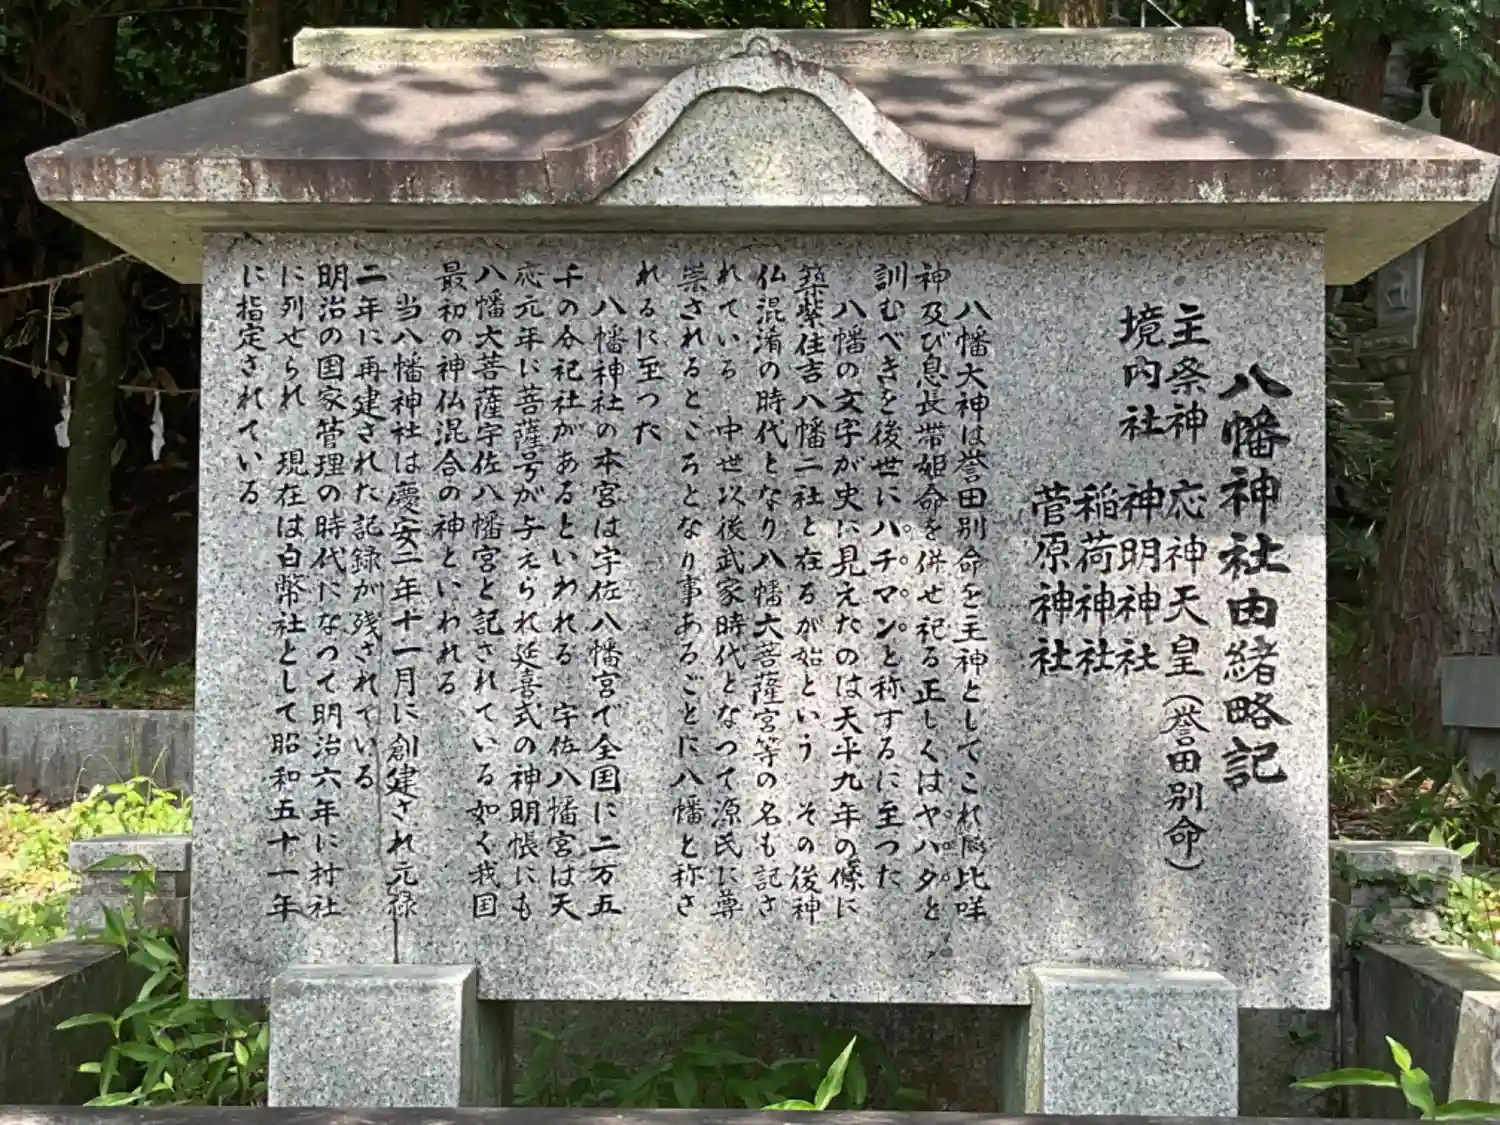 八幡神社由緒略記
主祭神 応神天皇（誉田別命）
境内社 神明神社
稲荷神社
菅原神社
八幡大神は誉田別命を主神としてこれに比咩
神及び息長帯姫命を併せ祀る正しくはヤハタと
訓むべきを後世にハチマンと称するに至つた
八幡の文字が史に見えたのは天平九年の條に
築紫住吉八幡二社と在るが始という その後神
仏混淆の時代となり八幡大菩薩宮等の名も記さ
れている 中世以後武家時代となつて源氏に尊
崇されるところとなり事あるごとに八幡と称さ
れるに至つた
八幡神社の本宮は宇佐八幡宮で全国に二万五
千の分祀社があるといわれる 宇佐八幡宮は天
応元年に菩薩号が与えられ延喜式の神明帳にも
八幡大菩薩宇佐八幡宮と記されている如く我国
最初の神仏混合の神といわれる
当八幡神社は慶安二年十一月に創建され元禄
二年に再建された記録が残されている
明治の国家管理の時代になつて明治六年に村社
に列せられ 現在は白幣社として昭和五十一年
に指定されている